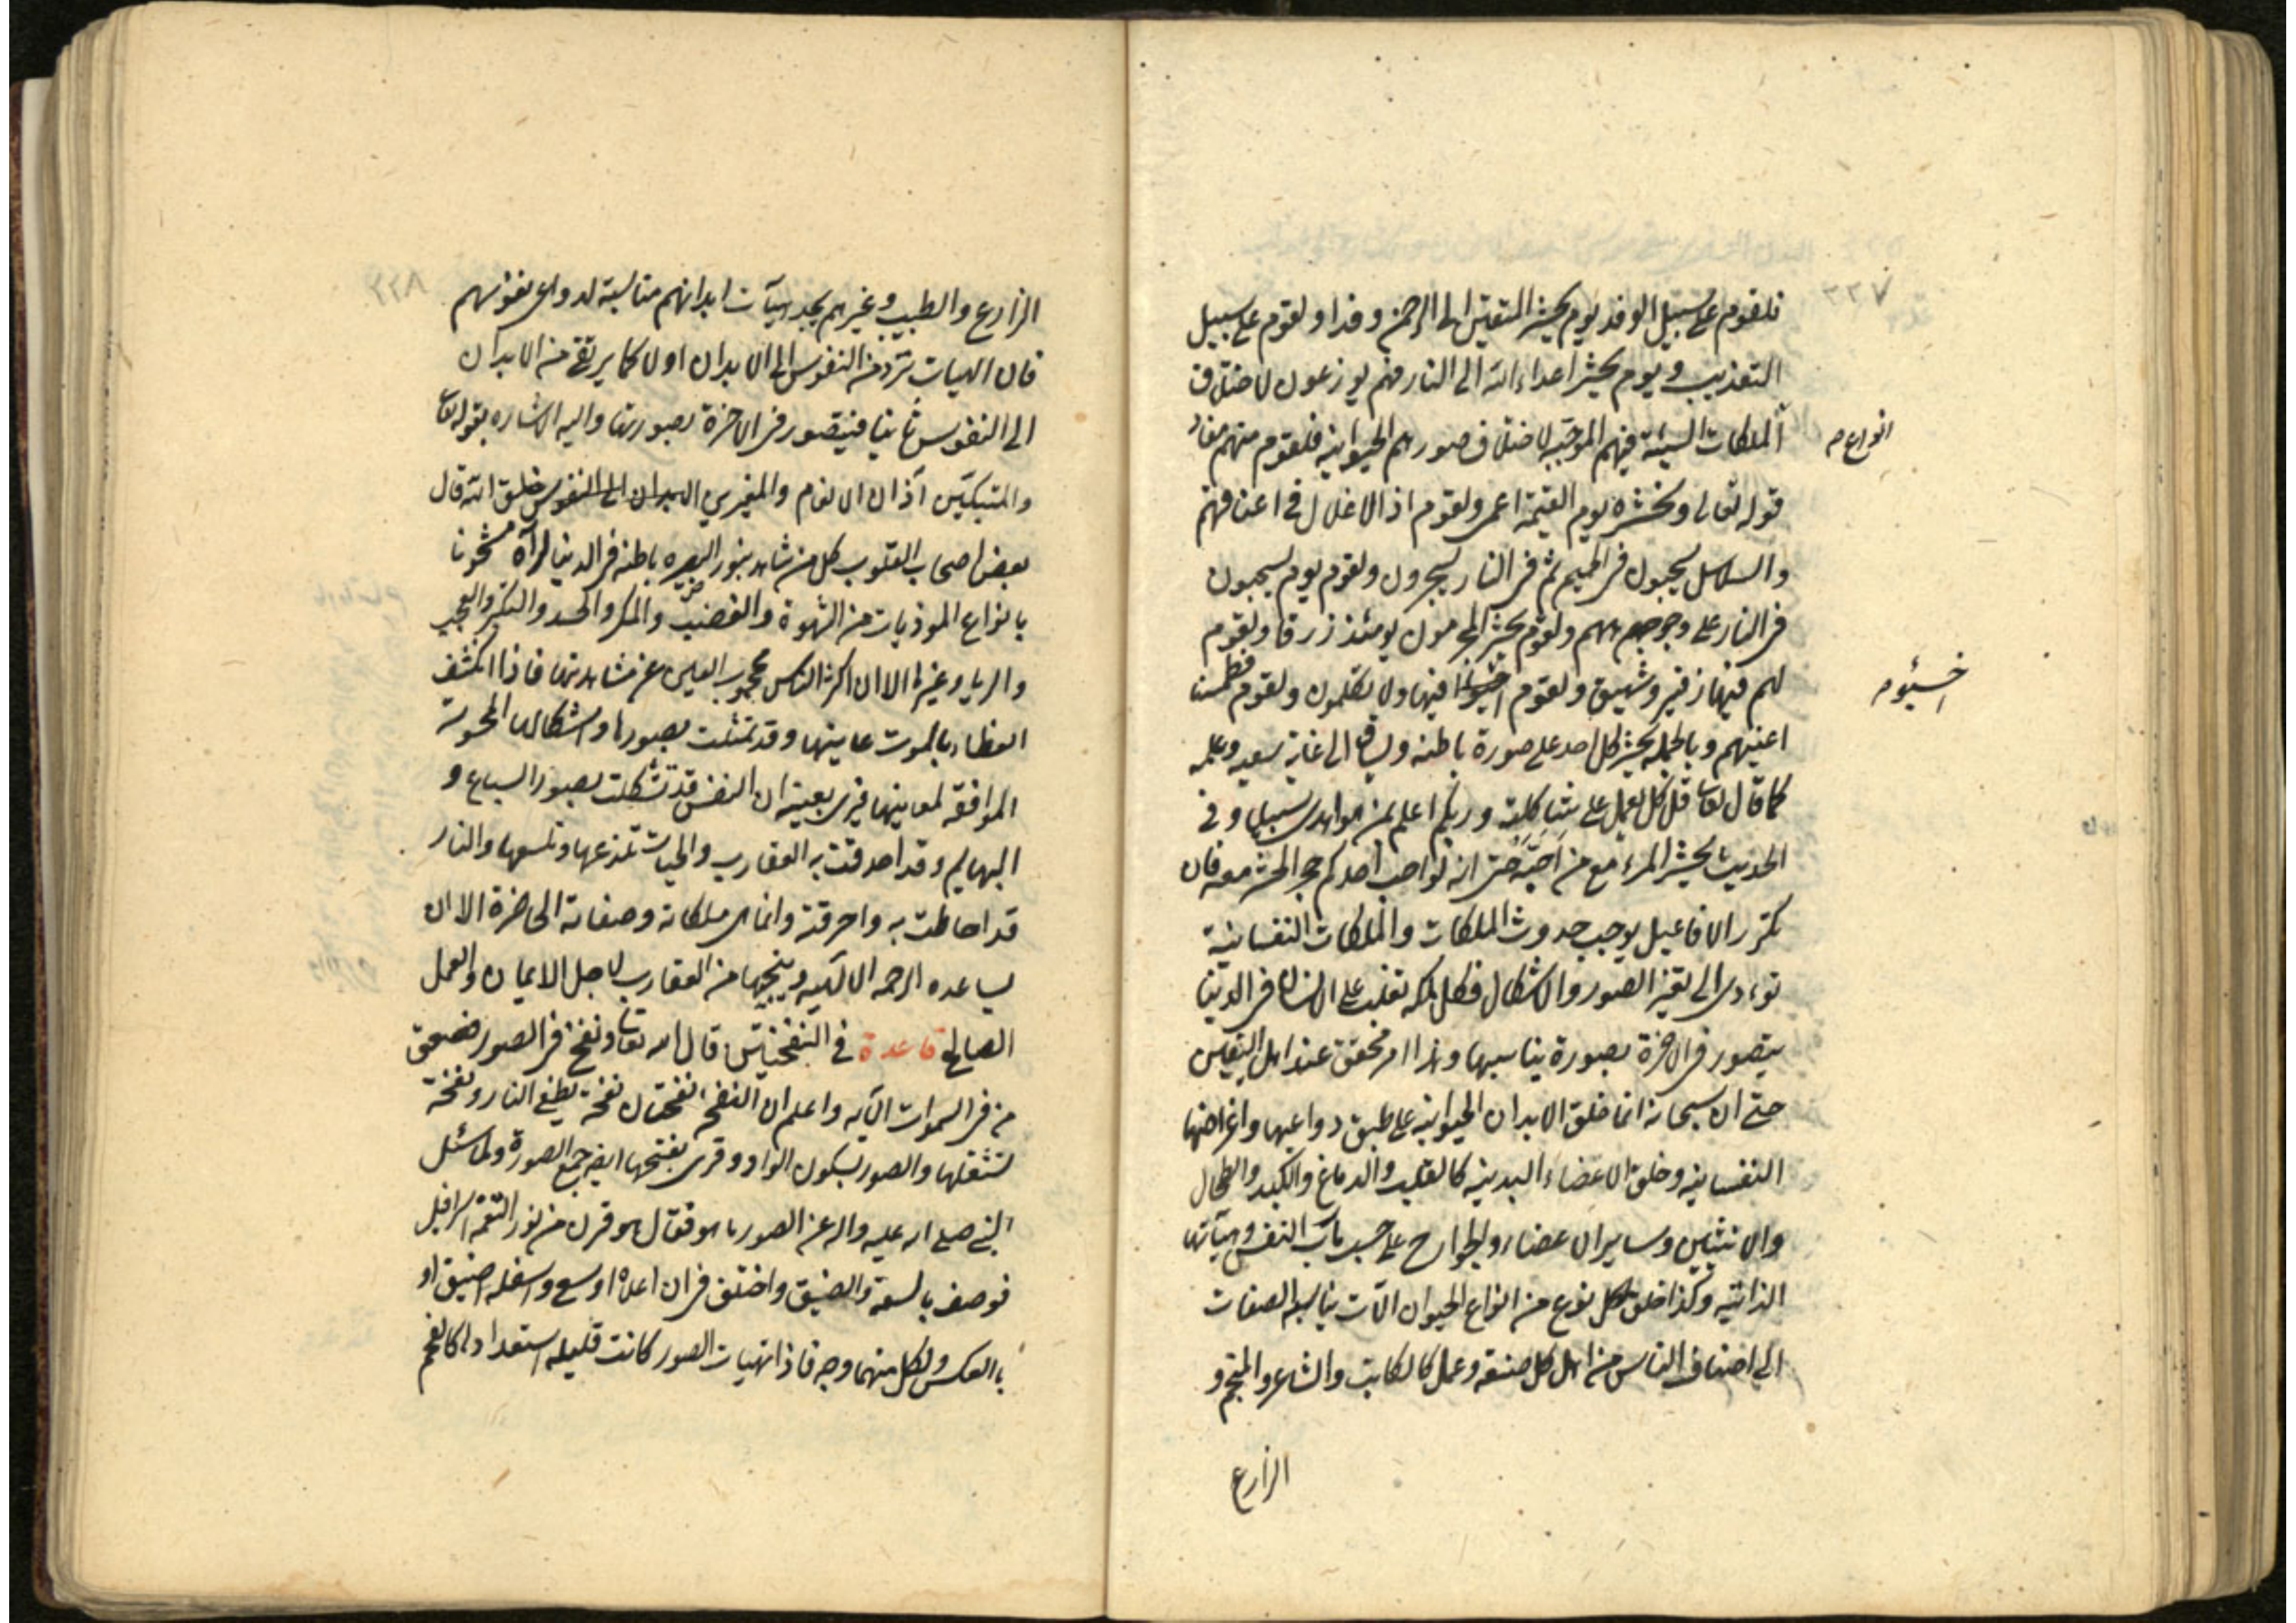 ٢٢٧
فلقوم على سبيل الوفد يوم يحشر المتقين الى الرحمن وفدا ولقوم على سبيل
التعذيب ويوم يحشر اعداء الله الى النار فهم يوزعون لاختلاف
انواع
الملكات السيئة فيهم الموجبة لاختلاف صورهم الحيوانية فلقوم منهم مفاد
قوله تعالى ونحشره يوم القيمة اعمى ولقوم اذ الاغلال في اعناقهم
والسلاسل يسحبون في الحميم ثم في النار يسجرون ولقوم يوم يسحبون
في النار على وجوههم ولقوم يحشر المجرمون يومئذ زرقا ولقوم
لهم فيها زفير وشهيق ولقوم اخسئوا فيها ولا تكلمون ولقوم فطمسنا
اخسئو
اعينهم وبالجملة يحشر كل احد على صورة باطنه ويساق الى غاية سعيه وعمله
كما قال تعا قل كل يعمل على شاكلته وربكم اعلم بمن هو اهدى سبيلا وفي
الحديث يحشر المرء مع من احبه حتى انه لو احب احدكم حجر الحشر معه فان
تكرر الافاعيل يوجب حدوث الملكات والملكات النفسانية
تؤدى الى تغير الصور والاشكال فكل ملكه تغلب على الانسان في الدنيا
يتصور في الاخرة بصورة يناسبها وهذا امر محقق عند اهل اليقين
حتى ان سبحانه انما خلق الابدان الحيوانيه على طبق دواعيها واغراضها
النفسانيه وخلق الاعضاء البدنيه كالقلب والدماغ والكبد والطحال
والانثيين وساير الاعضاء والجوارح على حسب مآب النفس وهيآتها
الذاتية وكذا خلق لكل نوع من انواع الحيوان آلات يناسب الصفات
الى اصناف الناس من اهل كل صنعه وعمل كالكاتب والشاعر والمنجم و
الزارع
٢٢٨
الزارع والطبيب وغيرهم يجد هيآت ابدانهم مناسبة لدواعى نفوسهم
فان الهيات ترد من النفوس الى الابدان اولا كما يرتقى من الابدان
الى النفوس ثانيا فيتصور في الاخرة بصورتها واليه الاشاره بقوله تعا
والمتبكين آذان الانعام والمغيرين الابدان الى النفوس خلق الله قال
بعض اصحاب القلوب كل من شاهد بنور البصيره باطنه في الدنيا لرآه مشحونا
بانواع الموذيات من الشهوة والغضب والمكر والحسد والتكبر والعجب
والريا وغيرها الا ان اكثر الناس محجوب العين عن مشاهدتها فاذا انكشف
الغطاء بالموت عاينها وقد تمثلت بصورها واشكالها المحسوسة
الموافقة لمعاينها فيرى بعينه ان النفس قد تشكلت بصور السباع و
البهايم وقد احدقت به العقارب والحيات تلذعها وتلسعها والنار
قد احاطت به واحرقته وانما هى ملكاته وصفاته الحاضرة الا ان
يساعده الرحمه الالهيه وينجيها من العقارب لاجل الايمان والعمل
الصالح قاعدة في النفختين قال الله تعا ونفخ في الصور فصعق
من في السموات الآيه واعلم ان النفخة نفختان نفخة يطفئ النار ونفخة
تشعلها والصور بسكون الواو وقرى بفتحها ايضا جمع الصورة ولما سئل
النبي صلى الله عليه واله عن الصور ما هو فقال هو قرن من نور التقمه اسرافيل
فوصف بالسعة والضيق واختلف في ان اعلاه اوسع واسفله اضيق او
بالعكس ولكل منهما وجه فاذا تهيات الصور كانت فتيله استعدادها كالفحم